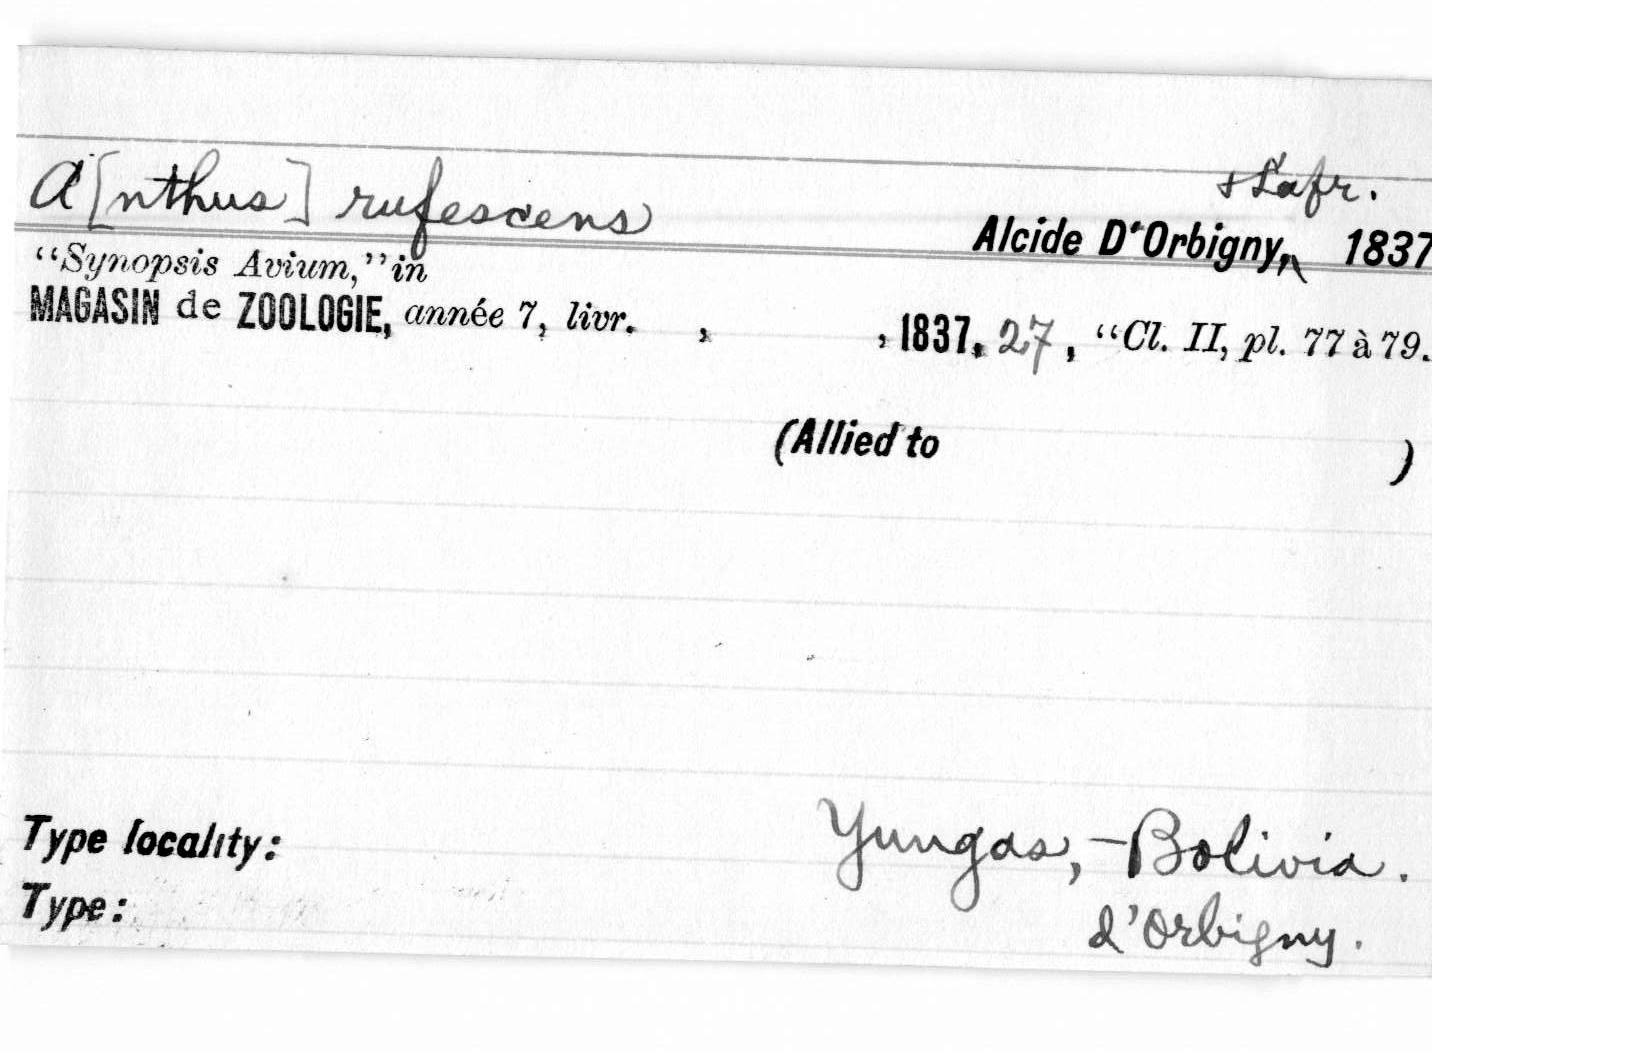 A[nthus] rufescens
& Lafr.
Alcide D'Orbigny, 1837
“Synopsis Avium,” in
MAGASIN de ZOOLOGIE, année 7, livr. , , 1837, 27, “Cl. II, pl. 77 à 79.
(Allied to )
Type locality: Yungas, – Bolivia.
Type: d'Orbigny.